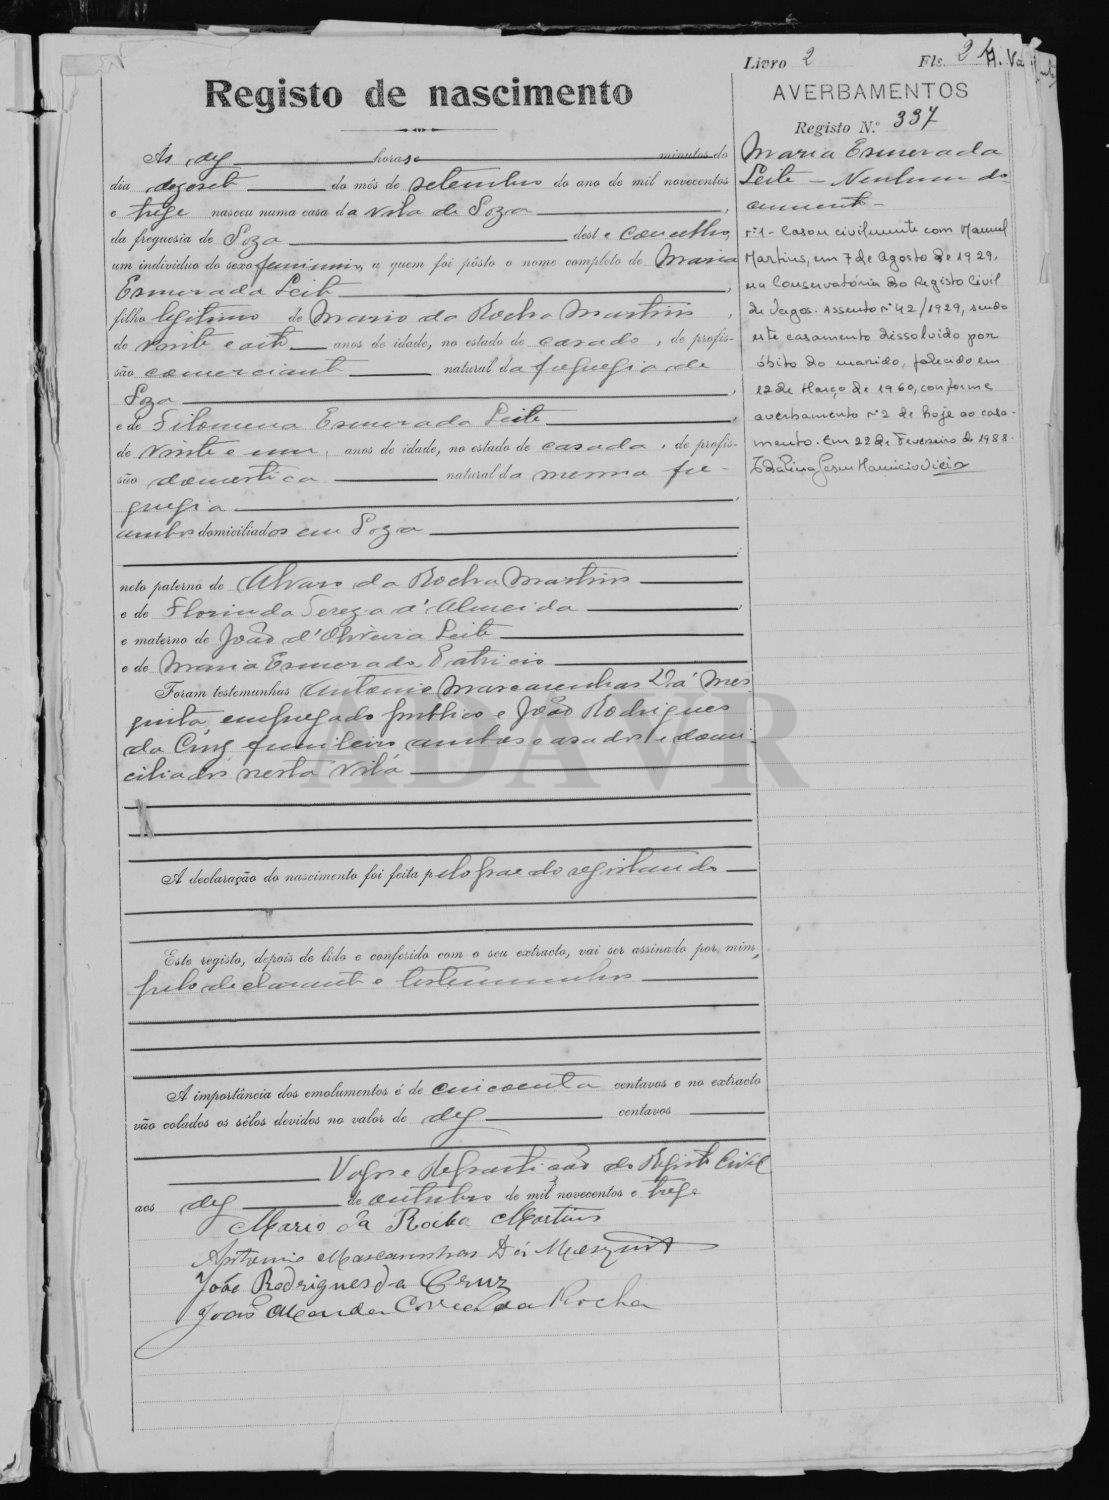 Livro 2 Fls. 24
Registo de nascimento
AVERBAMENTOS
Registo N.º 337
Às dez horas e minutos do
dia dezasete do mês de setembro do ano de mil novecentos
e treze nasceu numa casa da vila de Soza,
da freguesia de Soza deste concelho,
um individuo do sexo feminino, a quem foi pôsto o nome completo de Maria
Esmerada Leite,
filho legitimo de Mario da Rocha Martins,
de vinte e oito anos de idade, no estado de casado, de profis-
são comerciante natural da freguezia de
Soza,
e de Filomena Esmerada Leite,
de vinte e um, anos de idade, no estado de casada, de profis-
são domestica natural da mesma fre-
guezia,
ambos domiciliados em Soza
neto paterno de Alvaro da Rocha Martins
e de Florinda Tereza d'Almeida,
e materno de João d'Oliveira Leite
e de Maria Esmerada Patricio
Foram testemunhas Antonio Mascarenhas Dá Mes
quita, empregado publico e João Rodrigues
da Cruz funileiro ambos casados e domi
ciliados nesta vila
A declaração do nascimento foi feita pelo pae do registando
Este registo, depois de lido e conferido com o seu extracto, vai ser assinado por mim,
pelo declarante e testemunhas
A importância dos emolumentos é de cincoenta centavos e no extracto
vão colados os sêlos devidos no valor de dez centavos
Vagos e Repartição do Registo Civil
aos dez de outubro de mil novecentos e treze
Mario da Rocha Martins
Antonio Mascarenhas Dá Mesquita
João Rodrigues da Cruz
Rocha
Maria Esmerada
Leite – Nenhum do
cumento –
nº1 - Casou civilmente com Manuel
Martins, em 7 de Agosto de 1929,
na Conservatória do Registo Civil
de Vagos. Assento nº 42/1929, sendo
este casamento dissolvido por
óbito do marido, falecido em
12 de Março de 1960, conforme
averbamento nº2 de hoje ao casa-
mento. Em 22 de Fevereiro de 1988.
ADAVR